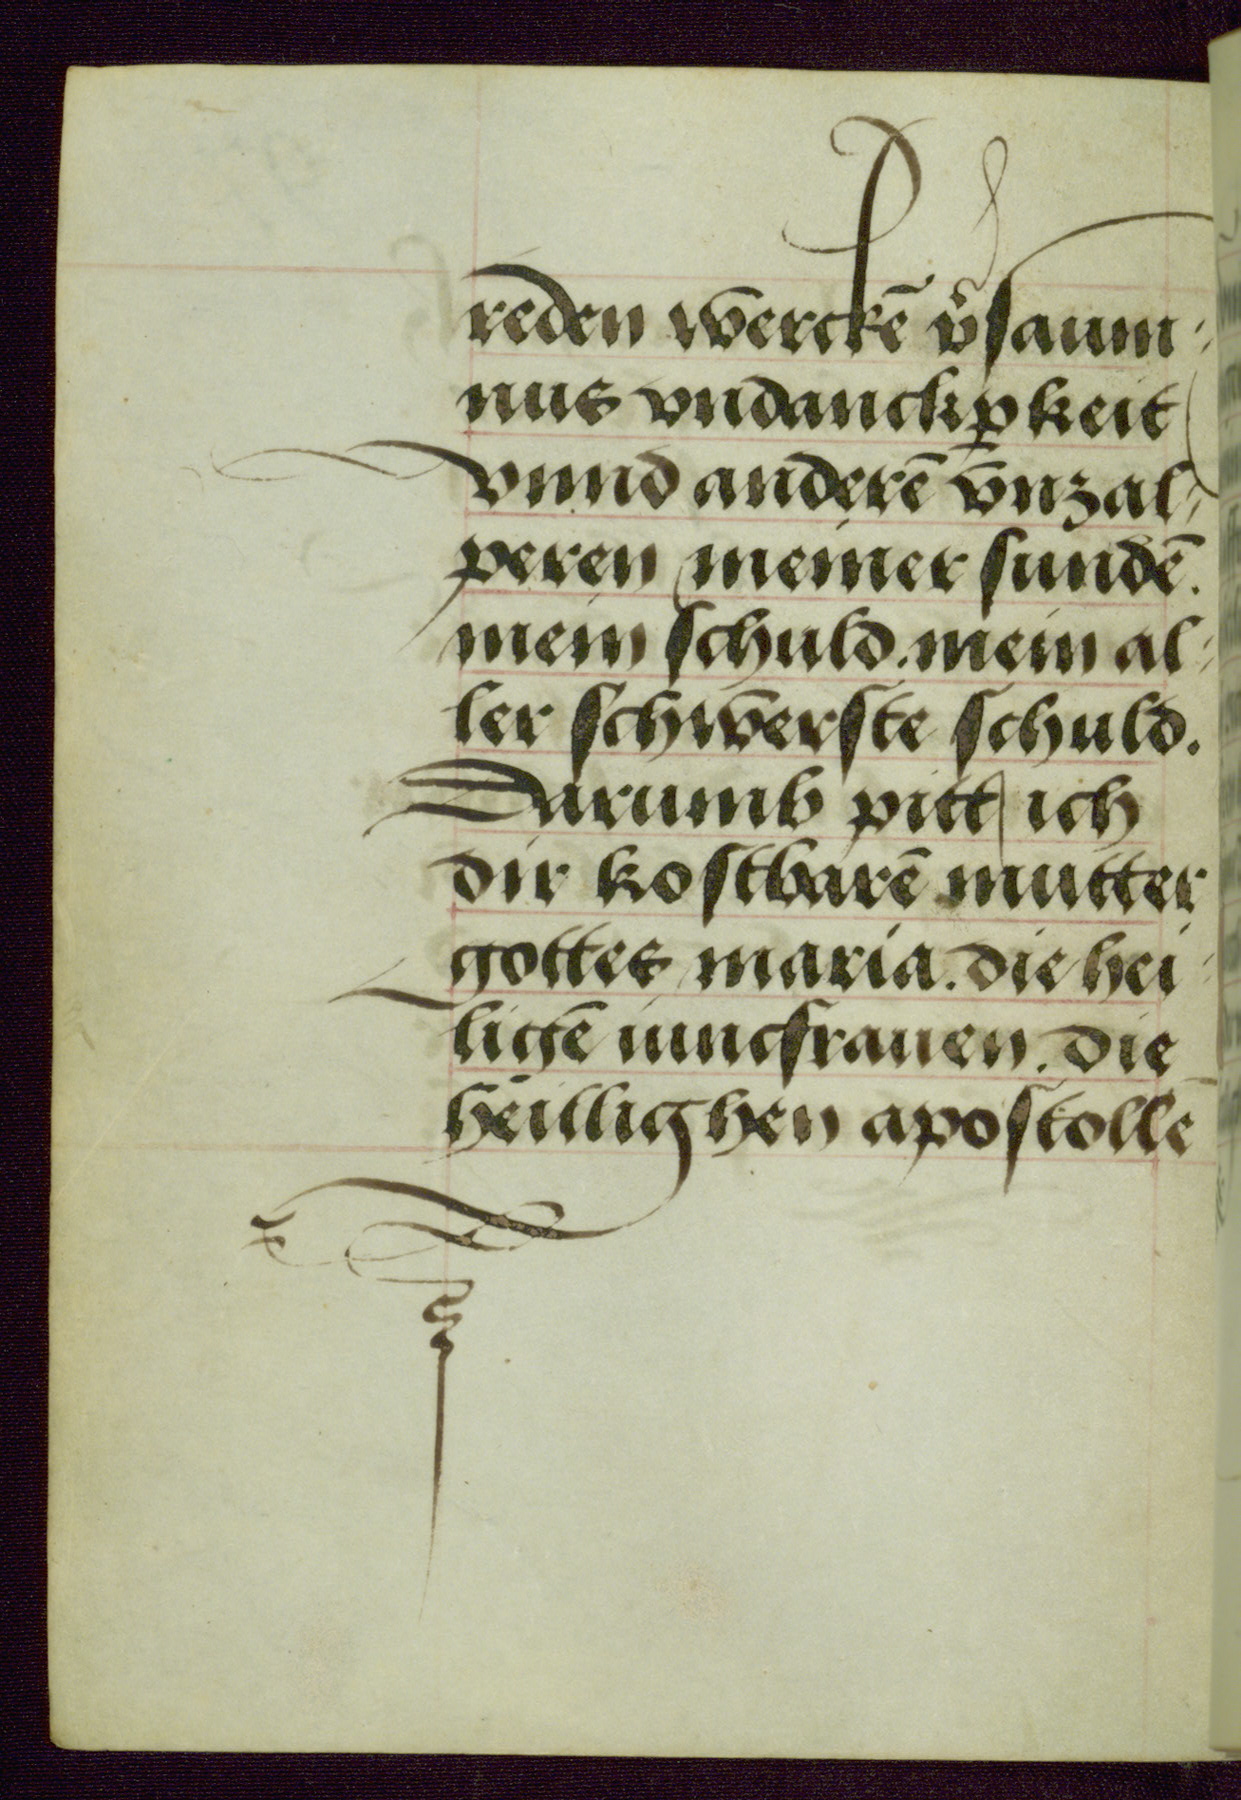 reden werckē v̉saum-
nus vndanckꝑkeit
vnnd anderē vnzal-
peren meiner sundē.
mein schuld. mein al-
ler schwerste schuld.
Darumb pitt ich
dir kostbarē mutter
gottes maria. die hei-
ligē iuncfrauen. die
heillighen apostollē